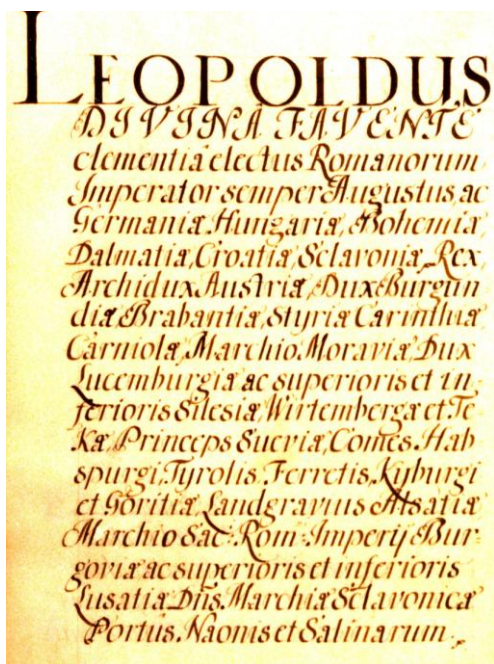 LEOPOLDUS
DIVINA FAVENTE
clementia electus Romanorum
Imperator semper Augustus, ac
Germaniæ, Hungariæ, Bohemiæ,
Dalmatiæ, Croatiæ, Sclavoniæ, Rex,
Archidux Austriæ, Dux Burgun
diæ Brabantiæ, Styriæ Carinthiæ
Carniolæ, Marchio Moraviæ, Dux
Lucemburgiæ ac superioris et in,
ferioris Silesiæ, Wirtembergæ et Te
Kæ, Princeps Sueviæ, Comes. Hab
spurgi, Tyrolis. Ferretis, Kyburgi
et Goritiæ Landgravius Alsatiæ
Marchio Sac: Rom: Imperij Bur-
goviæ ac superioris et inferioris
Lusatiæ Dns. Marchiæ Sclavonicæ
Portus. Naonis et Salinarum.